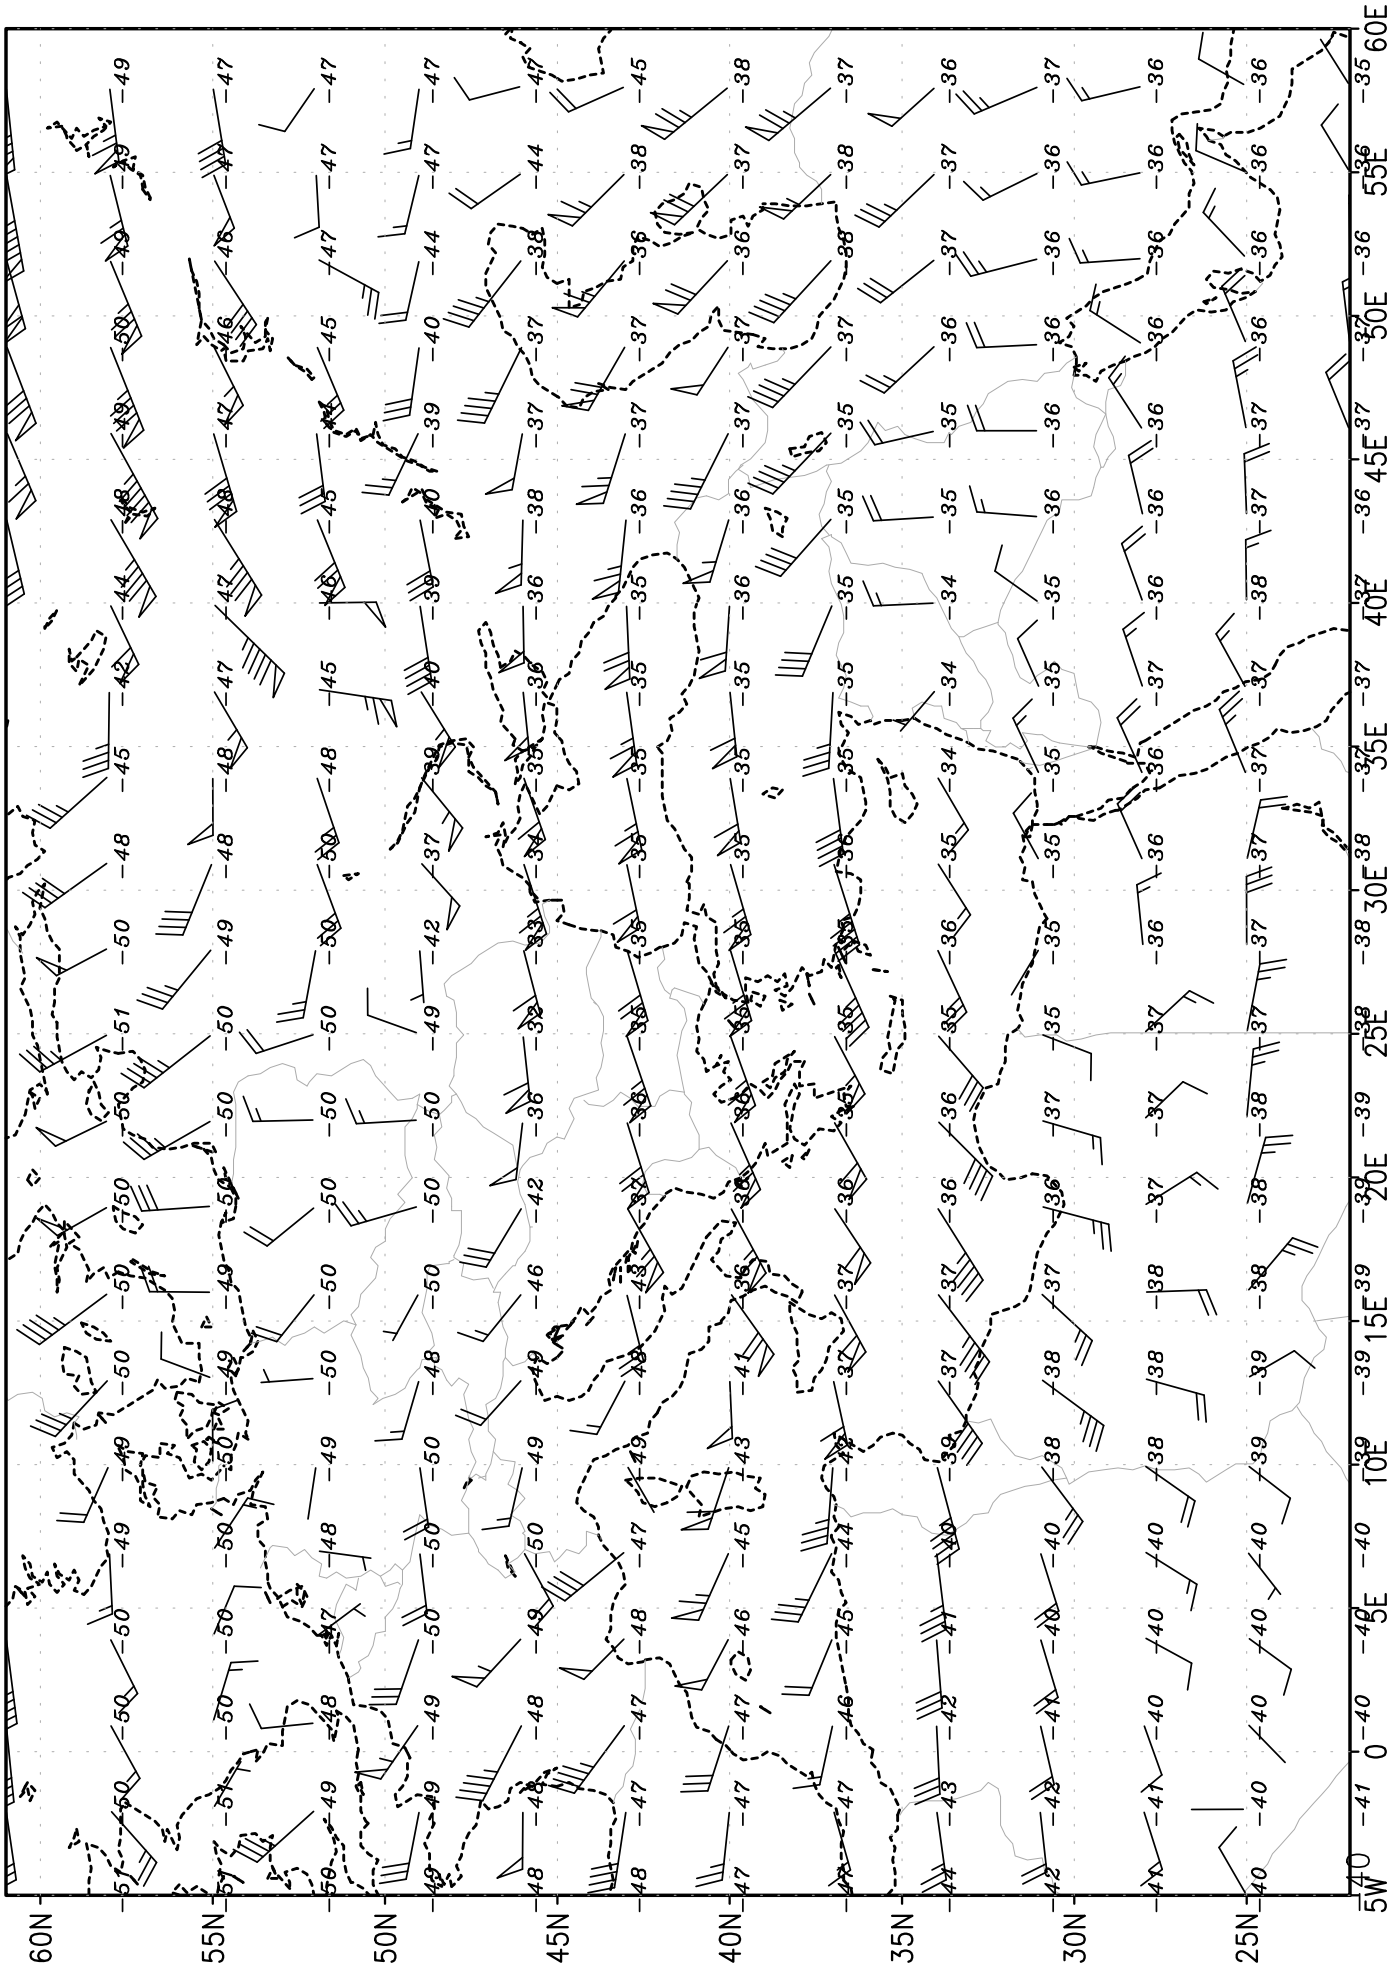 60N
-51 -50 -50 -50 -49 -49 -50 -50 -50 -50 -51 -50 -48 -45 -42 -44 -48 -49 -50 -49 -49 -49
55N
-51 -51 -50 -50 -50 -50 -49 -49 -50 -50 -50 -49 -48 -48 -47 -47 -48 -47 -46 -46 -47 -47
-50 -49 -48 -47 -48 -49 -50 -50 -50 -50 -50 -50 -50 -48 -45 -46 -45 -44 -45 -47 -47 -47
50N
-49 -49 -49 -50 -50 -50 -48 -50 -50 -50 -49 -42 -37 -39 -40 -39 -40 -39 -40 -44 -47 -47
-48 -48 -48 -49 -50 -49 -49 -46 -42 -36 -32 -33 -34 -35 -36 -36 -38 -37 -37 -38 -44 -47
45N
-48 -47 -47 -48 -47 -49 -48 -43 -37 -36 -35 -35 -35 -35 -35 -35 -36 -37 -37 -36 -38 -45
40N
-47 -47 -47 -46 -45 -43 -41 -36 -36 -36 -36 -35 -35 -35 -35 -36 -36 -37 -37 -36 -37 -38
-47 -47 -46 -45 -44 -42 -37 -37 -36 -35 -35 -35 -36 -35 -35 -35 -35 -35 -37 -38 -38 -37
35N
-44 -43 -42 -41 -40 -39 -37 -37 -36 -36 -35 -36 -35 -34 -34 -34 -35 -35 -37 -37 -37 -36
-42 -42 -41 -40 -40 -38 -38 -37 -36 -37 -35 -35 -35 -35 -35 -35 -36 -36 -36 -36 -36 -37
30N
-41 -41 -40 -40 -40 -38 -38 -38 -37 -37 -37 -36 -36 -36 -37 -36 -36 -36 -36 -36 -36 -36
25N
-40 -40 -40 -40 -40 -39 -39 -38 -38 -38 -37 -37 -37 -37 -37 -38 -37 -37 -36 -36 -36 -36
-40 -41 -40 -40 -40 -39 -39 -39 -39 -39 -38 -38 -38 -37 -37 -37 -36 -37 -37 -36 -36 -35
5W 0 5E 10E 15E 20E 25E 30E 35E 40E 45E 50E 55E 60E